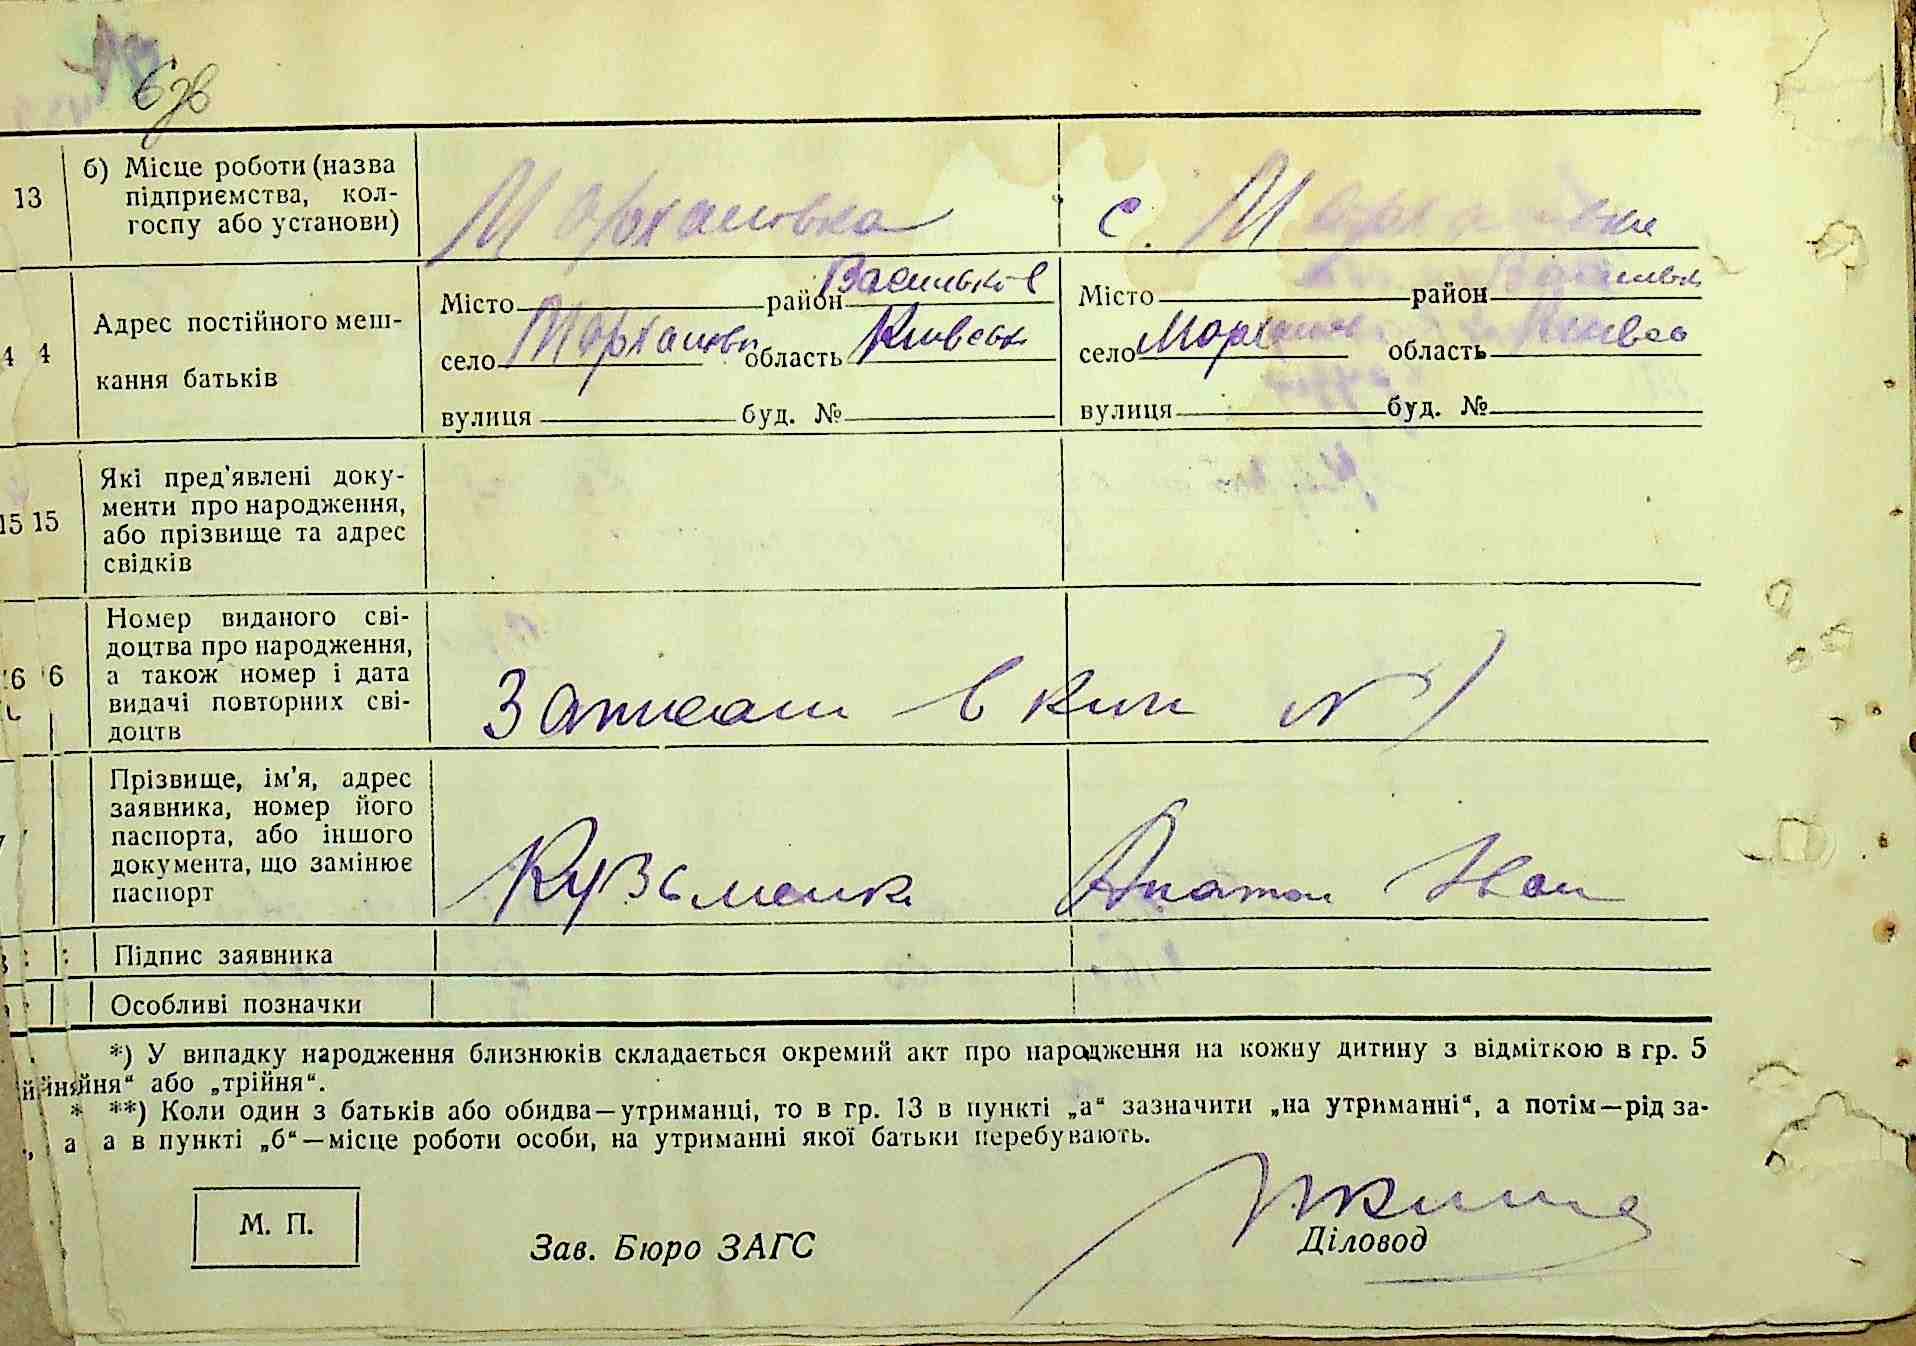 6 зв
13 б) Місце роботи (назва підприємства, кол-
госпу або установи) Мархалівка с. Мархалівка
4 4 Адрес постійного меш-
кання батьків
Місто район Васильків Місто район Васильк
село Мархалівк область Київськ село Мархалів область Київсь
вулиця буд. № вулиця буд. №
15 15 Які пред'явлені доку-
менти про народження,
або прізвище та адрес
свідків
6 6 Номер виданого сві-
доцтва про народження,
а також номер і дата
видачі повторних сві-
доцтв
Записан в книг № 1
Прізвище, ім'я, адрес
заявника, номер його
паспорта, або іншого
документа, що замінює
паспорт
Кузьменк Анатол Іван
Підпис заявника
Особливі позначки
*) У випадку народження близнюків складається окремий акт про народження на кожну дитину з відміткою в гр. 5
йня“ або „трійня“.
**) Коли один з батьків або обидва—утриманці, то в гр. 13 в пункті „а“ зазначити „на утриманні“, а потім—рід за-
а в пункті „б“—місце роботи особи, на утриманні якої батьки перебувають.
М. П.
Зав. Бюро ЗАГС
Діловод